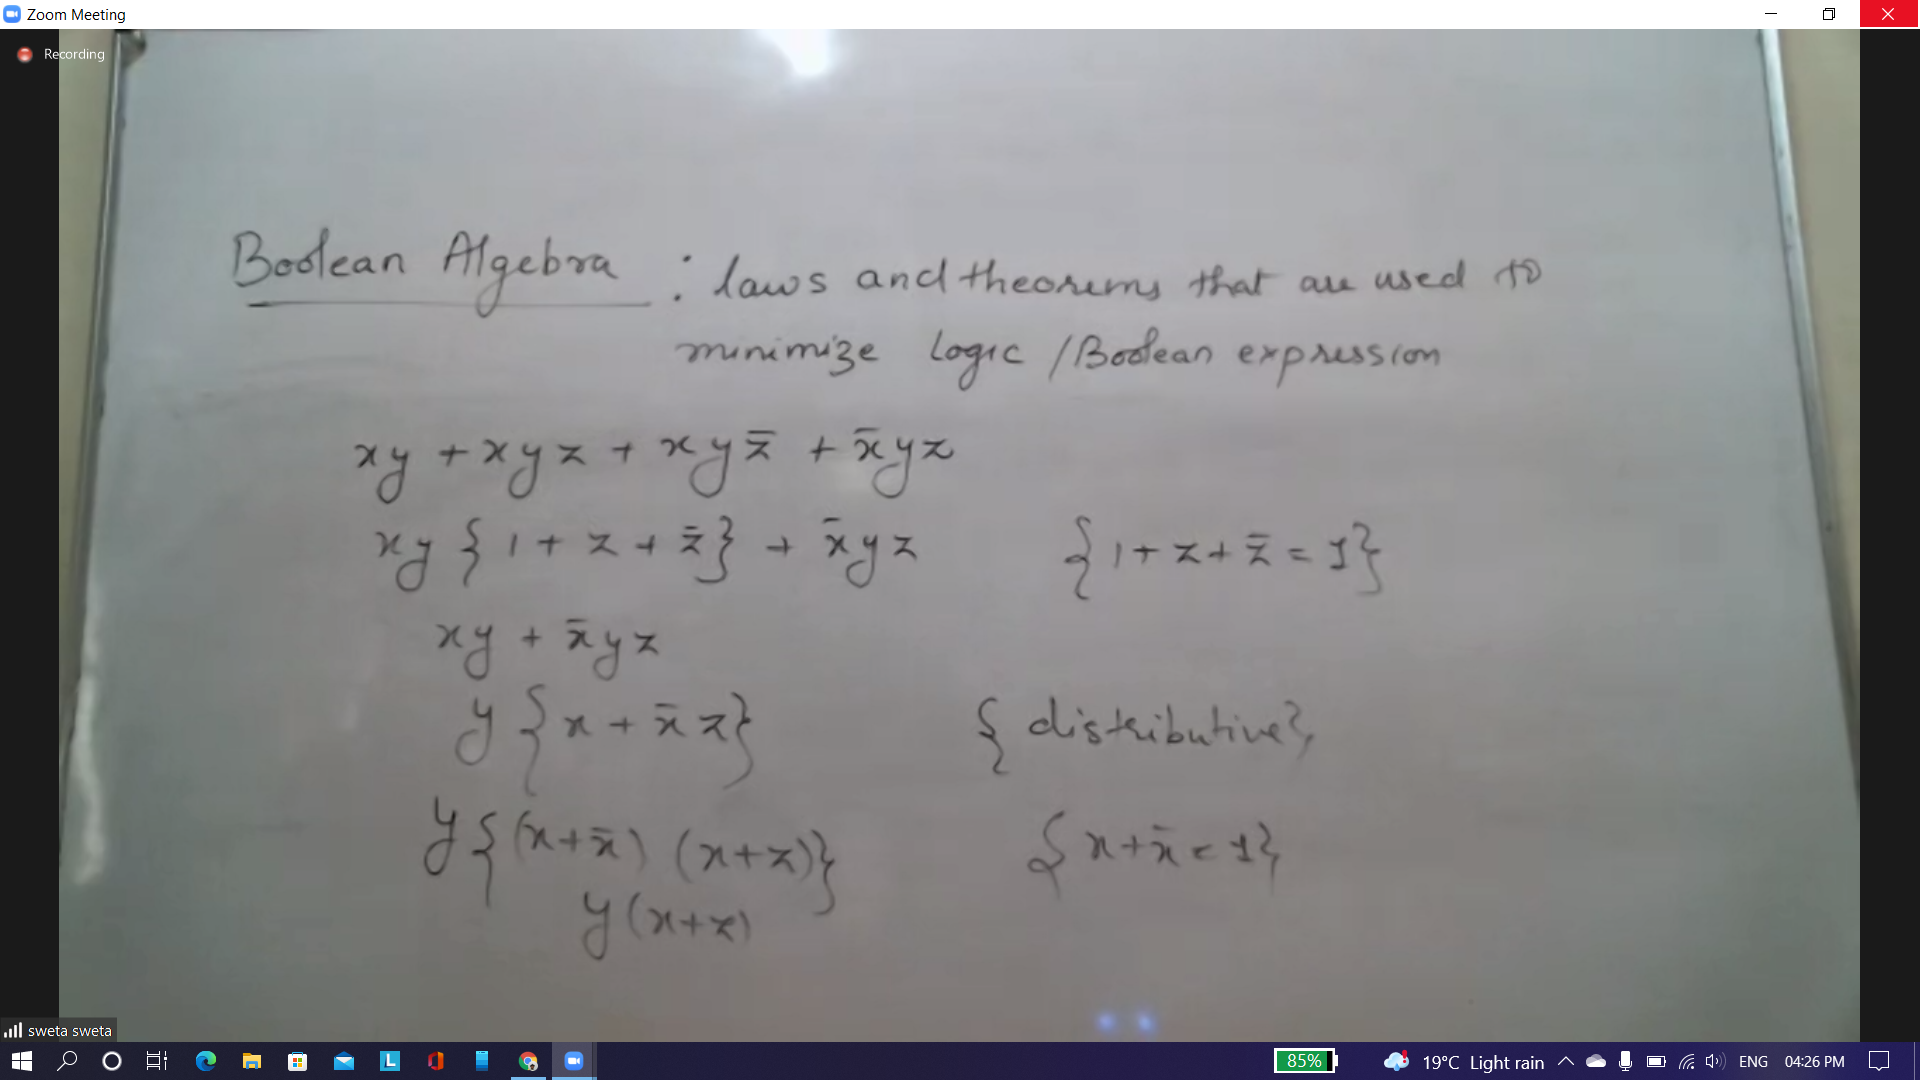 Zoom Meeting
Recording
Boolean Algebra : laws and theorems that are used to
minimize logic / Boolean expression
xy + xyz + xyz̄ + x̄yz
xy { 1 + z + z̄ } + x̄yz { 1 + z + z̄ = 1 }
xy + x̄yz
y { x + x̄z } { distributive }
y { (x + x̄) (x + z) } { x + x̄ = 1 }
y (x + z)
sweta sweta
85% 19°C Light rain ENG 04:26 PM